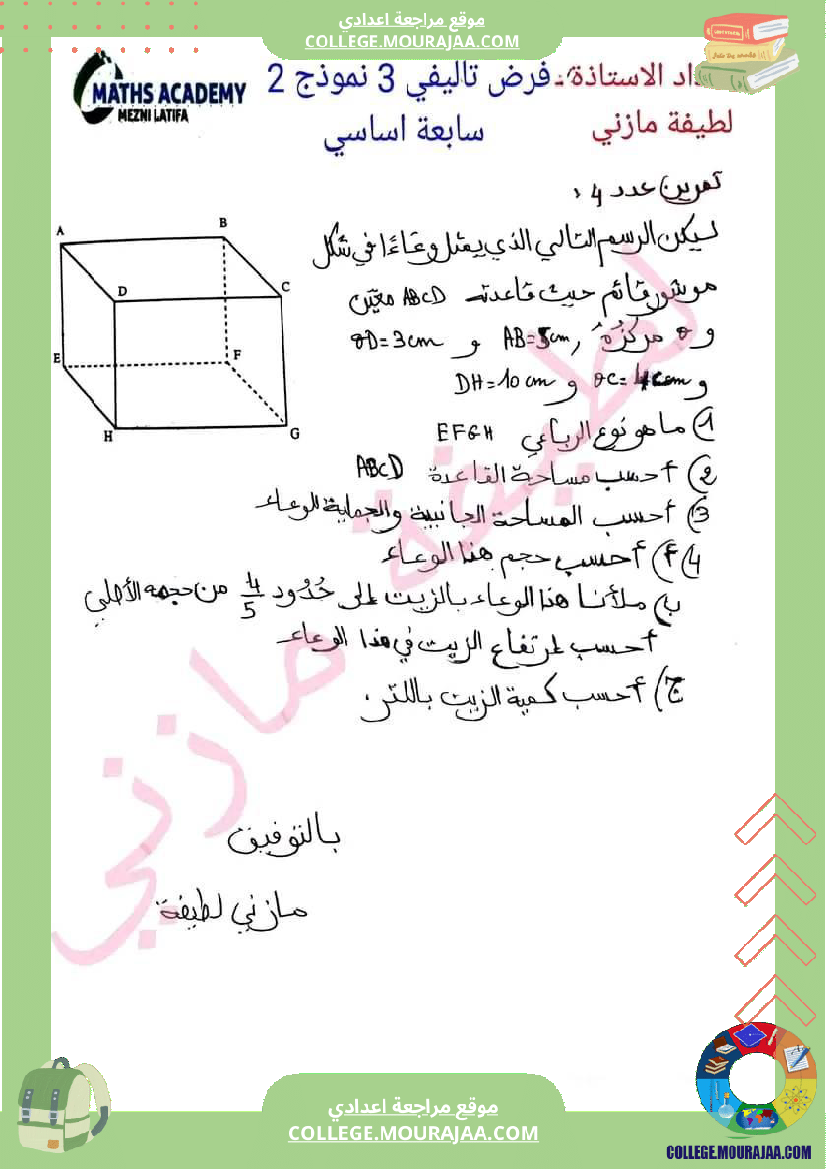 موقع مراجعة اعدادي
COLLEGE.MOURAJAA.COM
داد الاستاذة: فرض تاليفي 3 نموذج 2
MATHS ACADEMY
MEZNI LATIFA
لطيفة مازني
سابعة اساسي
تمرين عدد 4:
ليكن الرسم التالي الذي يمثل وعاءا في شكل
موشور قائم حيث قاعدته ABCD معين
و O مركزه, AB=5cm و OD=3cm
و OC=4cm و DH=10cm
1) ما هو نوع الرباعي EFGH
2) أحسب مساحة القاعدة ABCD
3) أحسب المساحة الجانبية والجملية للوعاء
4) أ) أحسب حجم هذا الوعاء
ب) ملأنا هذا الوعاء بالزيت إلى حدود 4/5 من حجمه الأصلي
أحسب إرتفاع الزيت في هذا الوعاء
ج) أحسب كمية الزيت باللتر.
A
B
D
C
E
F
H
G
بالتوفيق
مازني لطيفة
لطيفة مازني
موقع مراجعة اعدادي
COLLEGE.MOURAJAA.COM
COLLEGE.MOURAJAA.COM